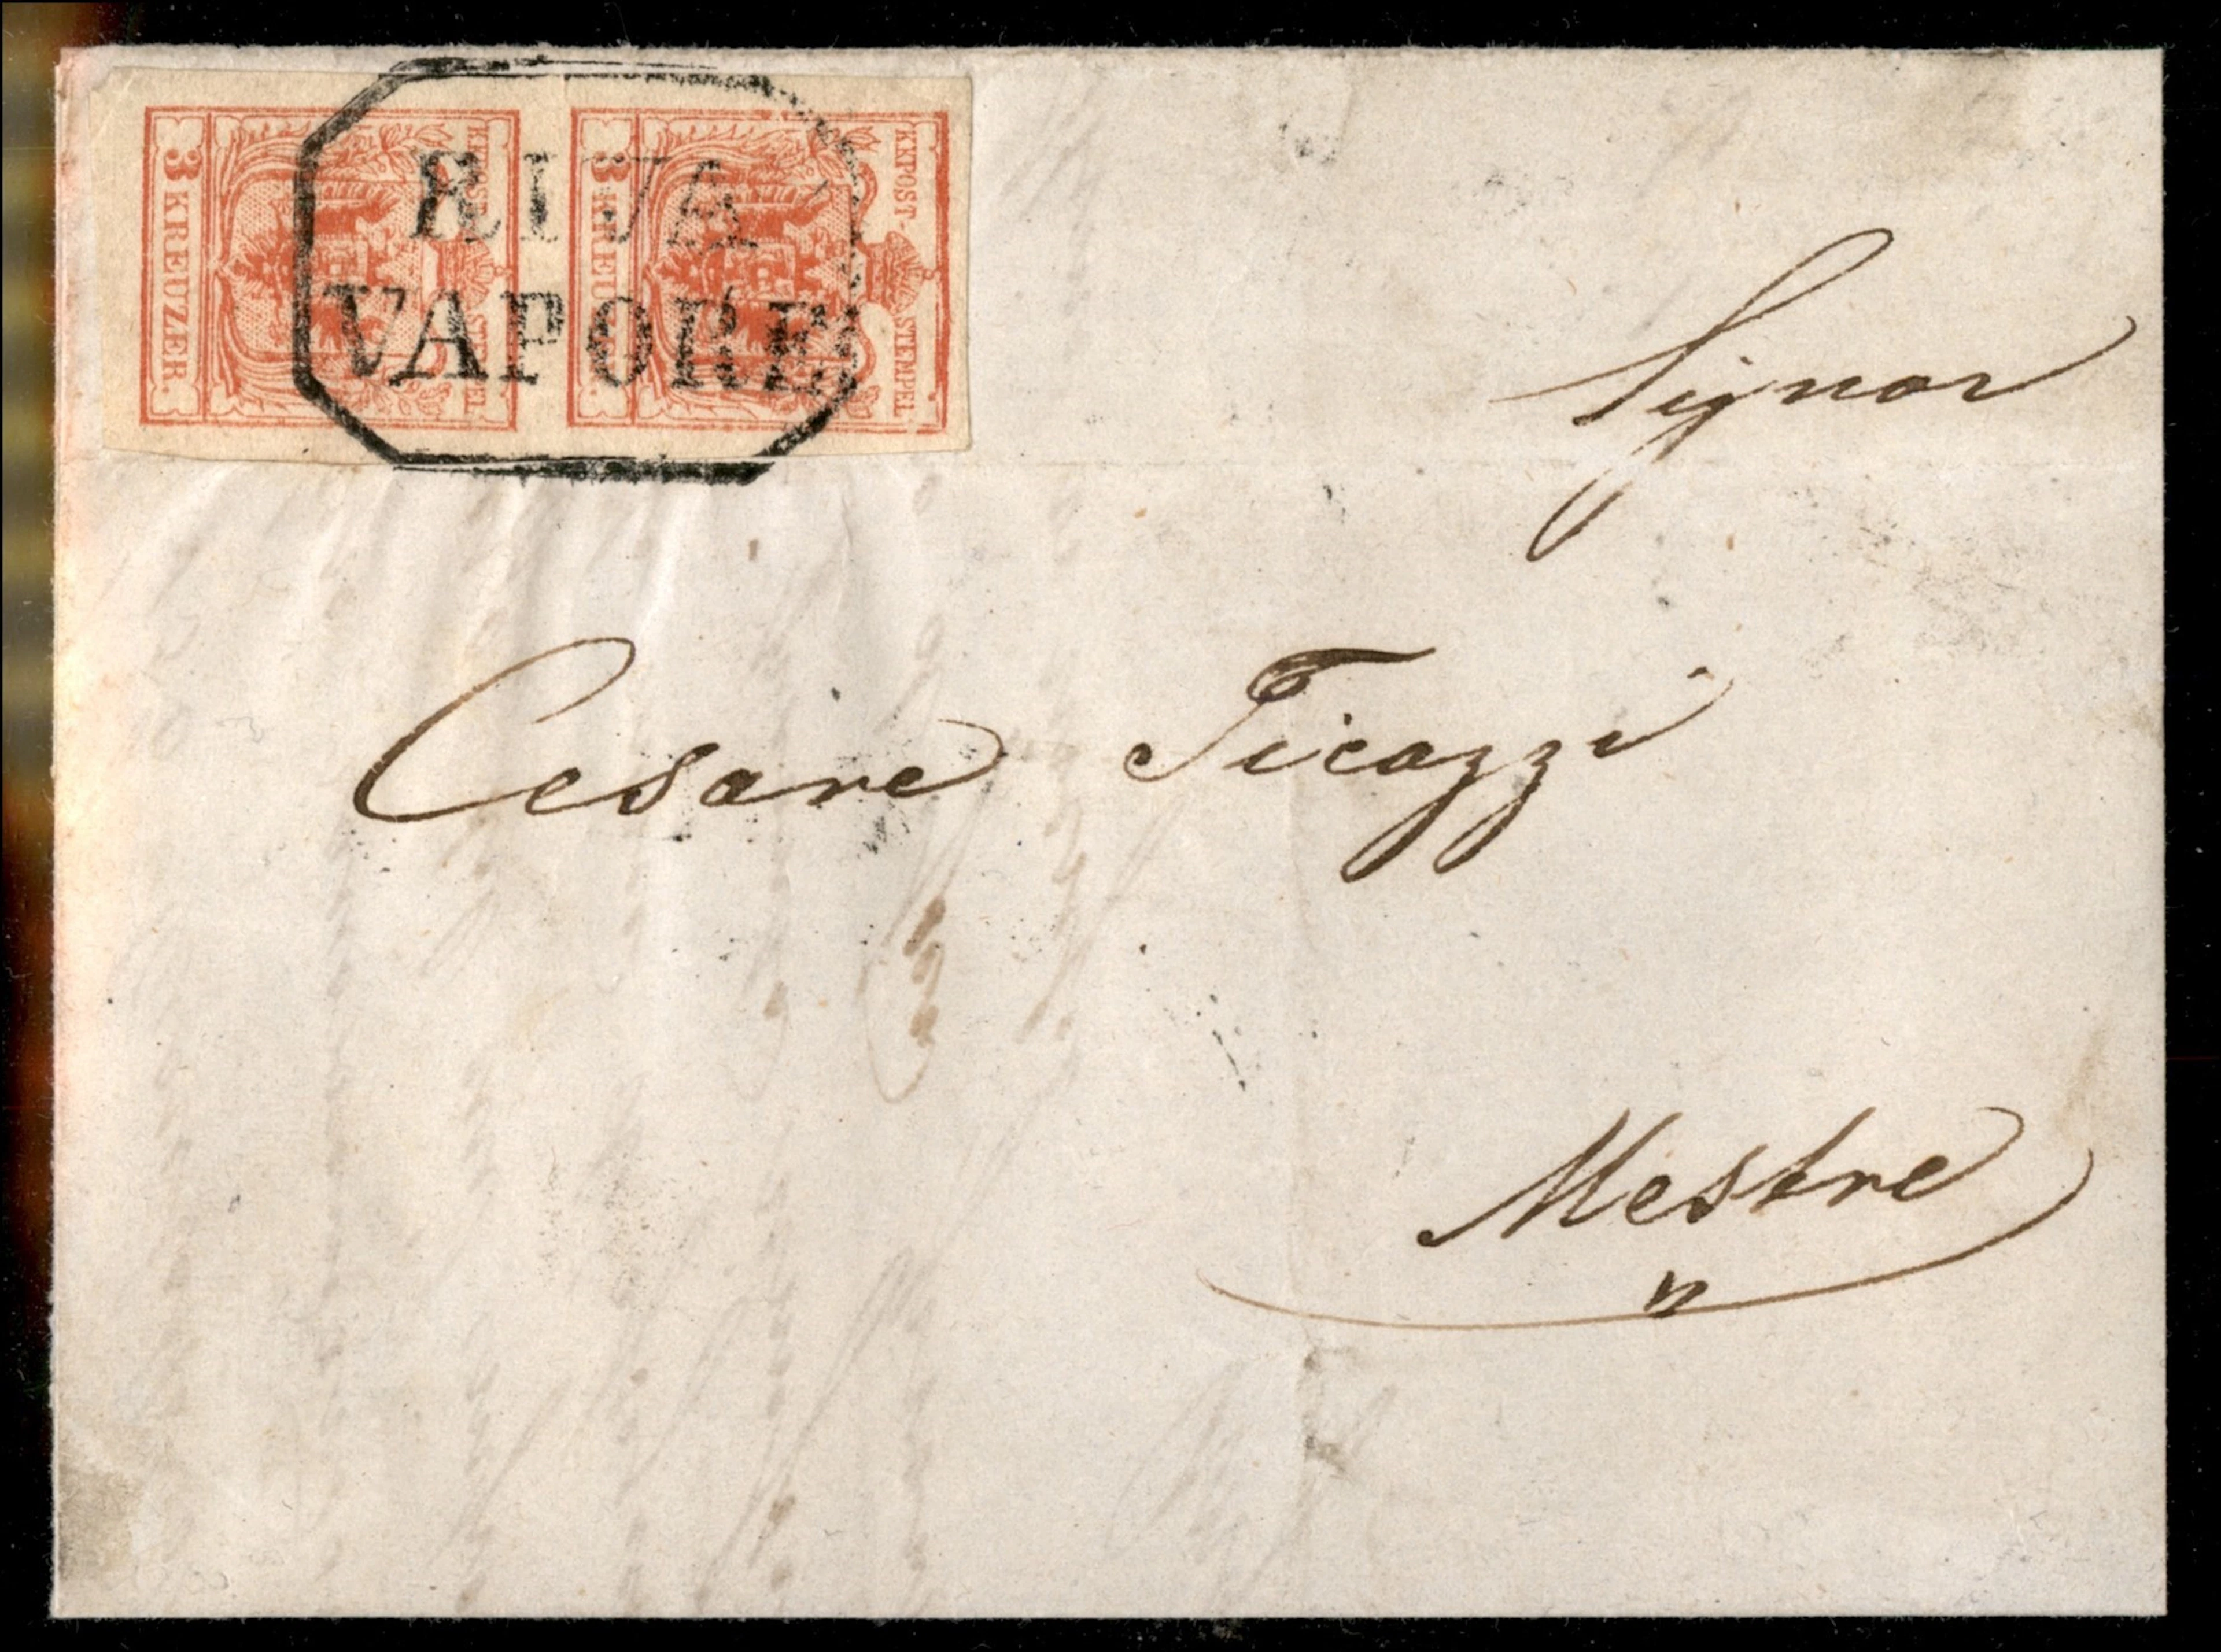 KKPOST-STEMPEL
3 KREUZER.
KKPOST-STEMPEL
3 KREUZER.
RIVA
VAPORE
Signor
Cesare Ticozzi
Mestre